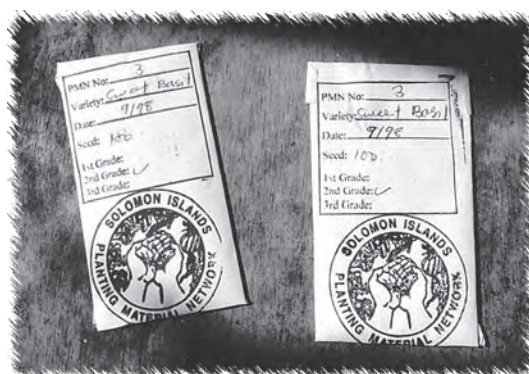 PMN No: 3
Variety: Sweet Basil
Date: 9/98
Seed: 100
1st Grade:
2nd Grade: ✓
3rd Grade:
SOLOMON ISLANDS
PLANTING MATERIAL NETWORK
PMN No: 3
Variety: Sweet Basil
Date: 9/98
Seed: 100
1st Grade:
2nd Grade: ✓
3rd Grade:
SOLOMON ISLANDS
PLANTING MATERIAL NETWORK